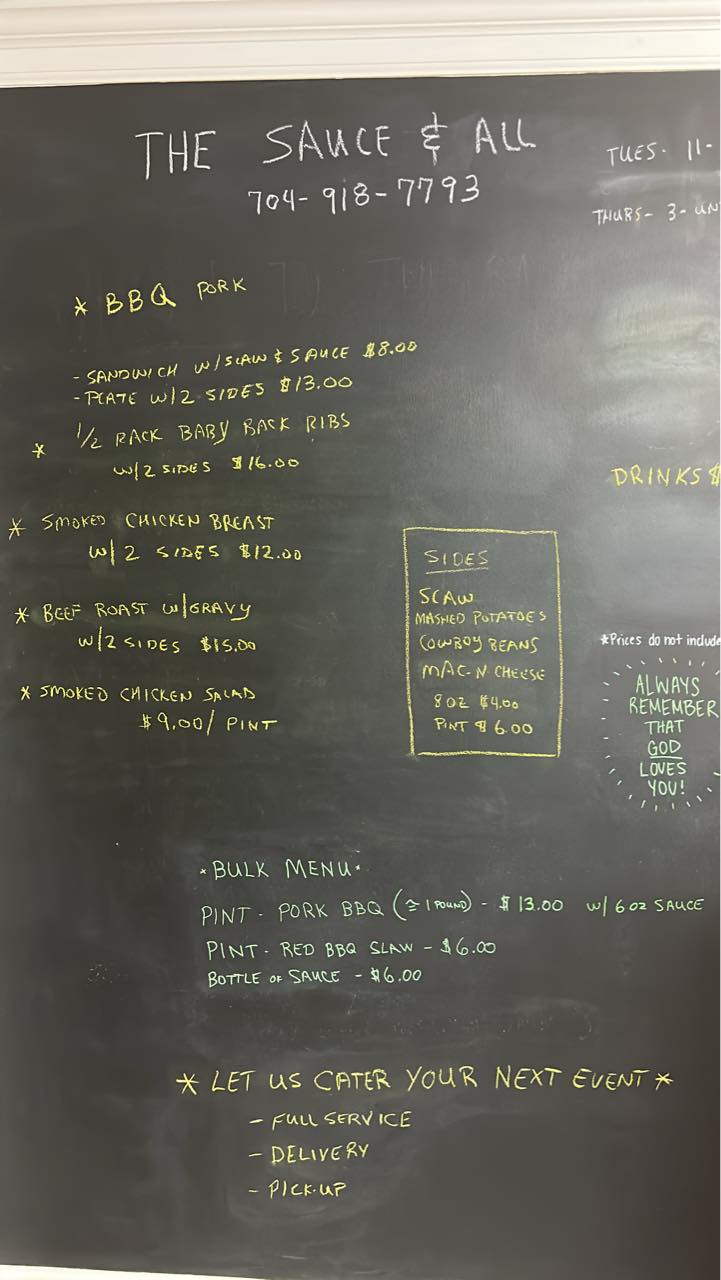 THE SAUCE & ALL
704-918-7793
TUES- 11-
THURS- 3- UN
* BBQ PORK
- SANDWICH W/SLAW & SAUCE $8.00
- PLATE W/2 SIDES $13.00
* 1/2 RACK BABY BACK RIBS
W/2 SIDES $16.00
DRINKS $
* SMOKED CHICKEN BREAST
W/ 2 SIDES $12.00
* BEEF ROAST W/GRAVY
W/2 SIDES $15.00
* SMOKED CHICKEN SALAD
$9.00/ PINT
SIDES
SLAW
MASHED POTATOES
COWBOY BEANS
MAC-N-CHEESE
8OZ $4.00
PINT $6.00
*Prices do not include
ALWAYS
REMEMBER
THAT
GOD
LOVES
YOU!
*BULK MENU*
PINT- PORK BBQ (≅ 1 POUND) - $13.00 W/ 6OZ SAUCE
PINT- RED BBQ SLAW - $6.00
BOTTLE OF SAUCE - $6.00
* LET US CATER YOUR NEXT EVENT *
- FULL SERVICE
- DELIVERY
- PICK-UP